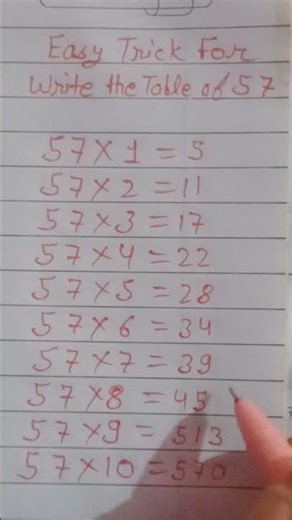 Easy Trick For
Write the Table of 57
57×1 = 5
57×2 = 11
57×3 = 17
57×4 = 22
57×5 = 28
57×6 = 34
57×7 = 39
57×8 = 45
57×9 = 513
57×10 = 570